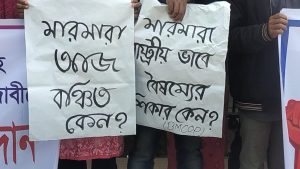 মারমারা
আজ
বঞ্চিত
কেন?
মারমারা
রাষ্ট্রীয় ভাবে
বৈষম্যের
শিকার কেন?